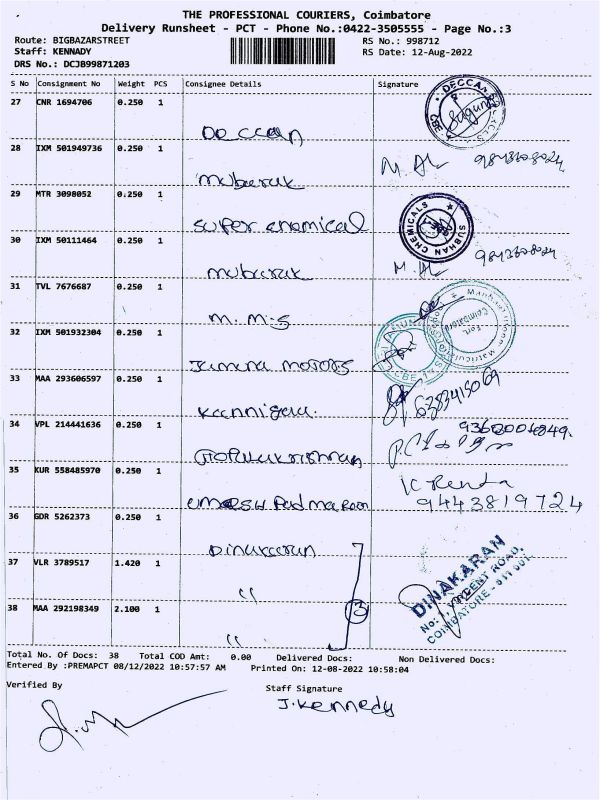 THE PROFESSIONAL COURIERS, Coimbatore
Delivery Runsheet - PCT - Phone No.:0422-3505555 - Page No.:3
Route: BIGBAZARSTREET
RS No.: 998712
Staff: KENNADY
RS Date: 12-Aug-2022
DRS No.: DCJB99871203
S No Consignment No Weight PCS Consignee Details Signature
27 CNR 1694706 0.250 1
Deccan
DECCAN
CBE
28 IXM 501949736 0.250 1
mubarak
29 MTR 3098052 0.250 1
super chemical
SUBHAN CHEMICALS
30 IXM 50111464 0.250 1
mubarak
31 TVL 7676687 0.250 1
M.M.S
Coimbatore
32 IXM 501932304 0.250 1
Jamuna motors
CBE-1
33 MAA 293606597 0.250 1
6383415069
34 VPL 214441636 0.250 1
Gopalakrishnan
35 KUR 558485970 0.250 1
umaesh Padma Room
9443819724
36 GDR 5262373 0.250 1
Dinakaran
37 VLR 3789517 1.420 1
"
38 MAA 292198349 2.100 1
"
3
DINAKARAN
COIMBATORE - 641 001.
Total No. Of Docs: 38 Total COD Amt: 0.00 Delivered Docs: Non Delivered Docs:
Entered By :PREMAPCT 08/12/2022 10:57:57 AM Printed On: 12-08-2022 10:58:04
Verified By
Staff Signature
J.Kennedy